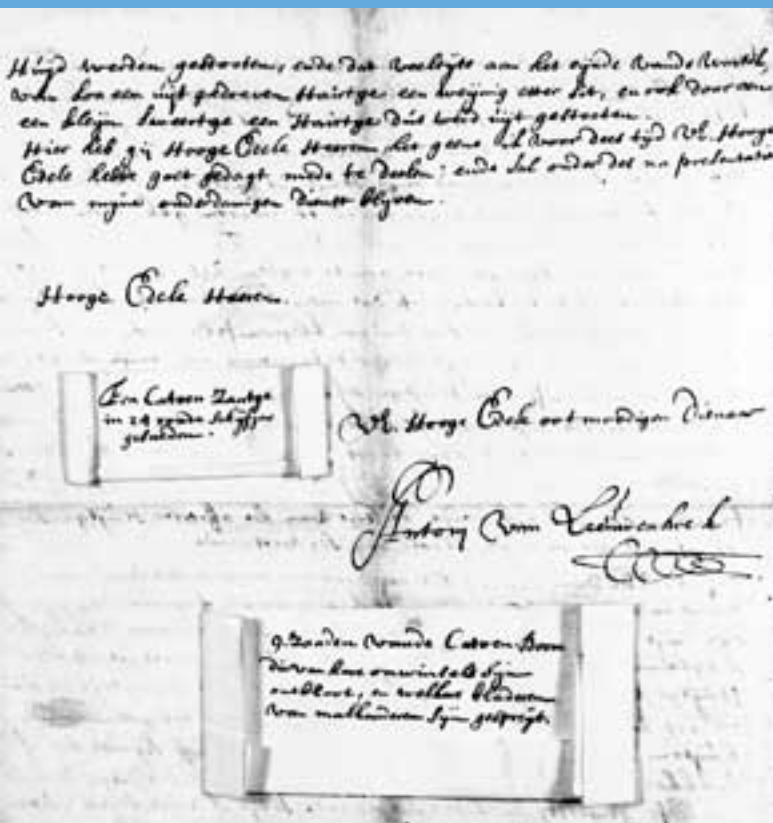 Huijd werden gestooten, ende dat veeltijts aan het eijnde vande
van soo een uijt gedreven Hairtge een weijnig etter sit, en ook door een
een kleijn Hairtge dus werd uijt gestooten.
Hier heb gij Hooge Edele Heeren het geene ik voor dees tijd UE. Hooge
Edele hebbe goet gedagt mede te deelen; ende sal onder des na presentatie
van mijne onderdanigen dienst blijven.
Hooge Edele Heeren.
Een Catoen Zaatge
in 24 ronde schijfjens
gesneden.
UE. Hooge Edele ootmoedigen Dienaar
Antonj van Leeuwenhoek
9. Zaaden vande Catoen Boom
die van hare omwintels sijn
ontbloot, en welkers bladeren
van malkanderen sijn gespreijt.